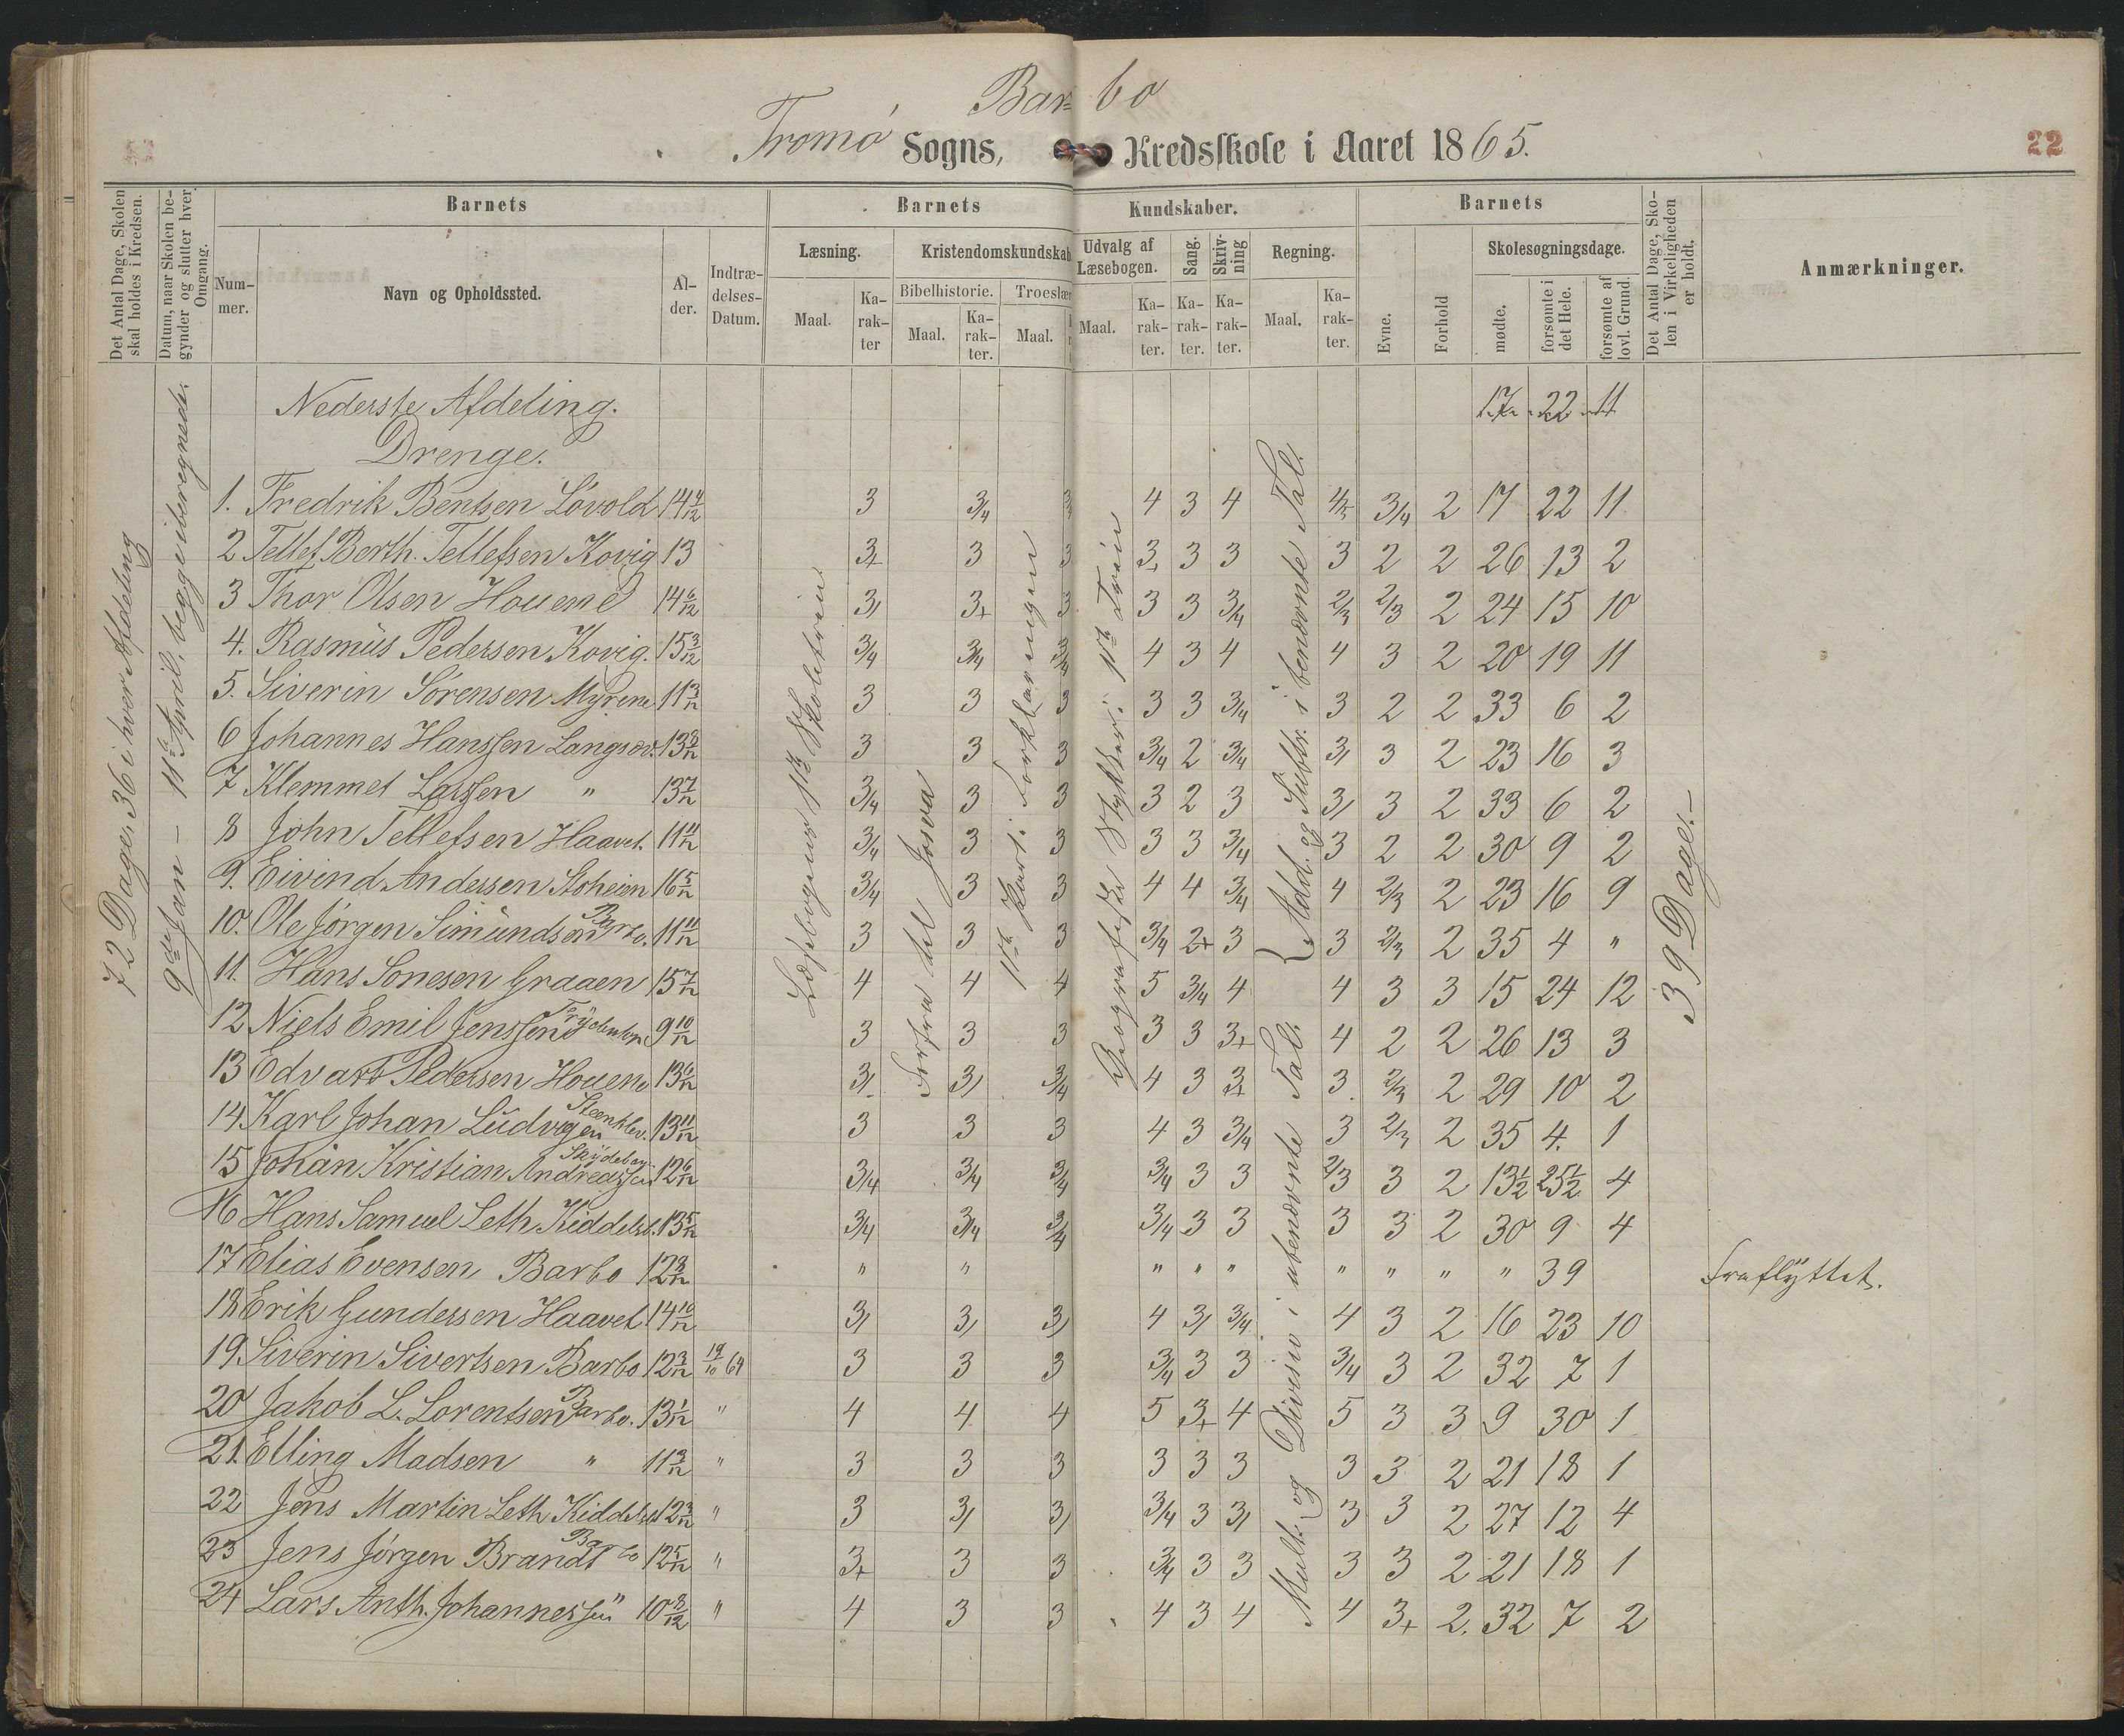 Barbo
Tromø Sogns, Kredsskole i Aaret 1865.
22
Det Antal Dage, Skolen skal holdes i Kredsen.
Datum, naar Skolen begynder og slutter hver Omgang.
Barnets
Nummer.
Navn og Opholdssted.
Alder.
Indtrædelses-Datum.
Barnets Kundskaber.
Læsning.
Maal.
Karakter
Kristendomskundskab
Bibelhistorie.
Maal.
Karakter.
Troeslær
Maal.
Udvalg af Læsebogen.
Maal.
Karakter.
Sang.
Karakter.
Skrivning
Karakter.
Regning.
Maal.
Karakter.
Barnets
Evne.
Forhold
Skolesøgningsdage.
mødte.
forsømte i det Hele.
forsømte af lovl. Grund.
Det Antal Dage, Skolen i Virkeligheden er holdt.
Anmærkninger.
72 Dage, 36 i hver Afdeling
9de Jan – 11te April, begge iberegnede.
Læsebogens 1ste Skoletrin
Forfra til Josva
1ste Part i Forklaringen
Geografiske Stykker i 1ste Trin
Add. og Subtr. i benævnte Tal.
Mult. og Division i ubenævnte Tal.
39 Dage.–
Nederste Afdeling. 17 22 11
Drenge.
1. Fredrik Bentsen Løvold 14 4/12 3 3/4 3 4 3 4 4/5 3/4 2 17 22 11
2 Tellef Berth. Tellefsen Kovig 13 3+ 3 3 3+ 3 3 3 2 2 26 13 2
3 Thor Olsen Houene 14 6/12 3/ 3+ 3 3 3 3/4 2/3 2/3 2 24 15 10
4. Rasmus Pedersen Kovig. 15 3/12 3/4 3/4 3/4 4 3 4 4 3 2 20 19 11
5. Siverin Sørensen Myrene 11 3/12 3 3 3 3 3 3/4 3 2 2 33 6 2
6 Johannes Hanssen Langsæv. 13 8/12 3 3 3 3/4 2 3/4 3/ 3 2 23 16 3
7 Klemmet Larssen " 13 7/12 3/4 3 3 3 2 3 3/ 3 2 33 6 2
8 John Tellefsen Haavet. 11 11/12 3/4 3 3 3 3 3/4 3 2 2 30 9 2
9. Eivind Andersen Stoheien 16 5/12 3/4 3 3 4 4 3/4 4 2/3 2 23 16 9
10. Ole Jørgen Simundsen Barbo. 11 11/12 3 3 3 3/4 2+ 3 3 2/3 2 35 4 "
11. Hans Sonesen Graaen 15 7/12 4 4 4 5 3/4 4 4 3 3 15 24 12
12 Niels Emil Jenssen 9 10/12 3 3 3 3 3 3+ 4 2 2 26 13 3
13 Edvart Pedersen Houene 13 6/12 3/ 3/ 3/4 4 3 3+ 3 2/3 2 29 10 2
14 Karl Johan Ludvigsen Steenklev. 13 11/12 3 3 3 4 3 3/4 3 2/3 2 35 4. 1
15 Johan Kristian Andreassen 12 6/12 3/4 3/4 3/4 3/4 3 3 2/3 3 2 13 1/2 25 1/2 4
16 Hans Samuel Leth Kiddelsb. 13 5/12 3/4 3/4 3/4 3/4 3 3 3 3 2 30 9 4
17 Elias Evensen, Barbo 12 9/12 " " " " " " " " " 39 Fraflyttet.
18 Erik Gundersen Haavet 14 10/12 3/ 3/ 3/ 4 3/ 3/4 4 3 2 16 23 10
19. Siverin Sivertsen Barbo 12 3/12 19/10 64 3 3 3 3/4 3 3 3/4 3 2 32 7 1
20 Jakob L. Lorentsen Barbo. 13 1/12 " 4 4 4 5 3+ 4 5 3 3 9 30 1
21. Elling Madsen " 11 3/12 " 3 3 3 3 3 3 3 3 2 21 18 1
22 Jens Martin Leth Kiddelsb 12 3/12 " 3 3/ 3/ 3/4 3 3/ 3 3 2 27 12 4
23 Jens Jørgen Brandt Barbo 12 5/12 " 3+ 3 3 3/4 3 3 3 3 2 21 18 1
24 Lars Anth. Johannessen " 10 8/12 " 4 3 3 4 3 4 4 3+ 2. 32 7 2